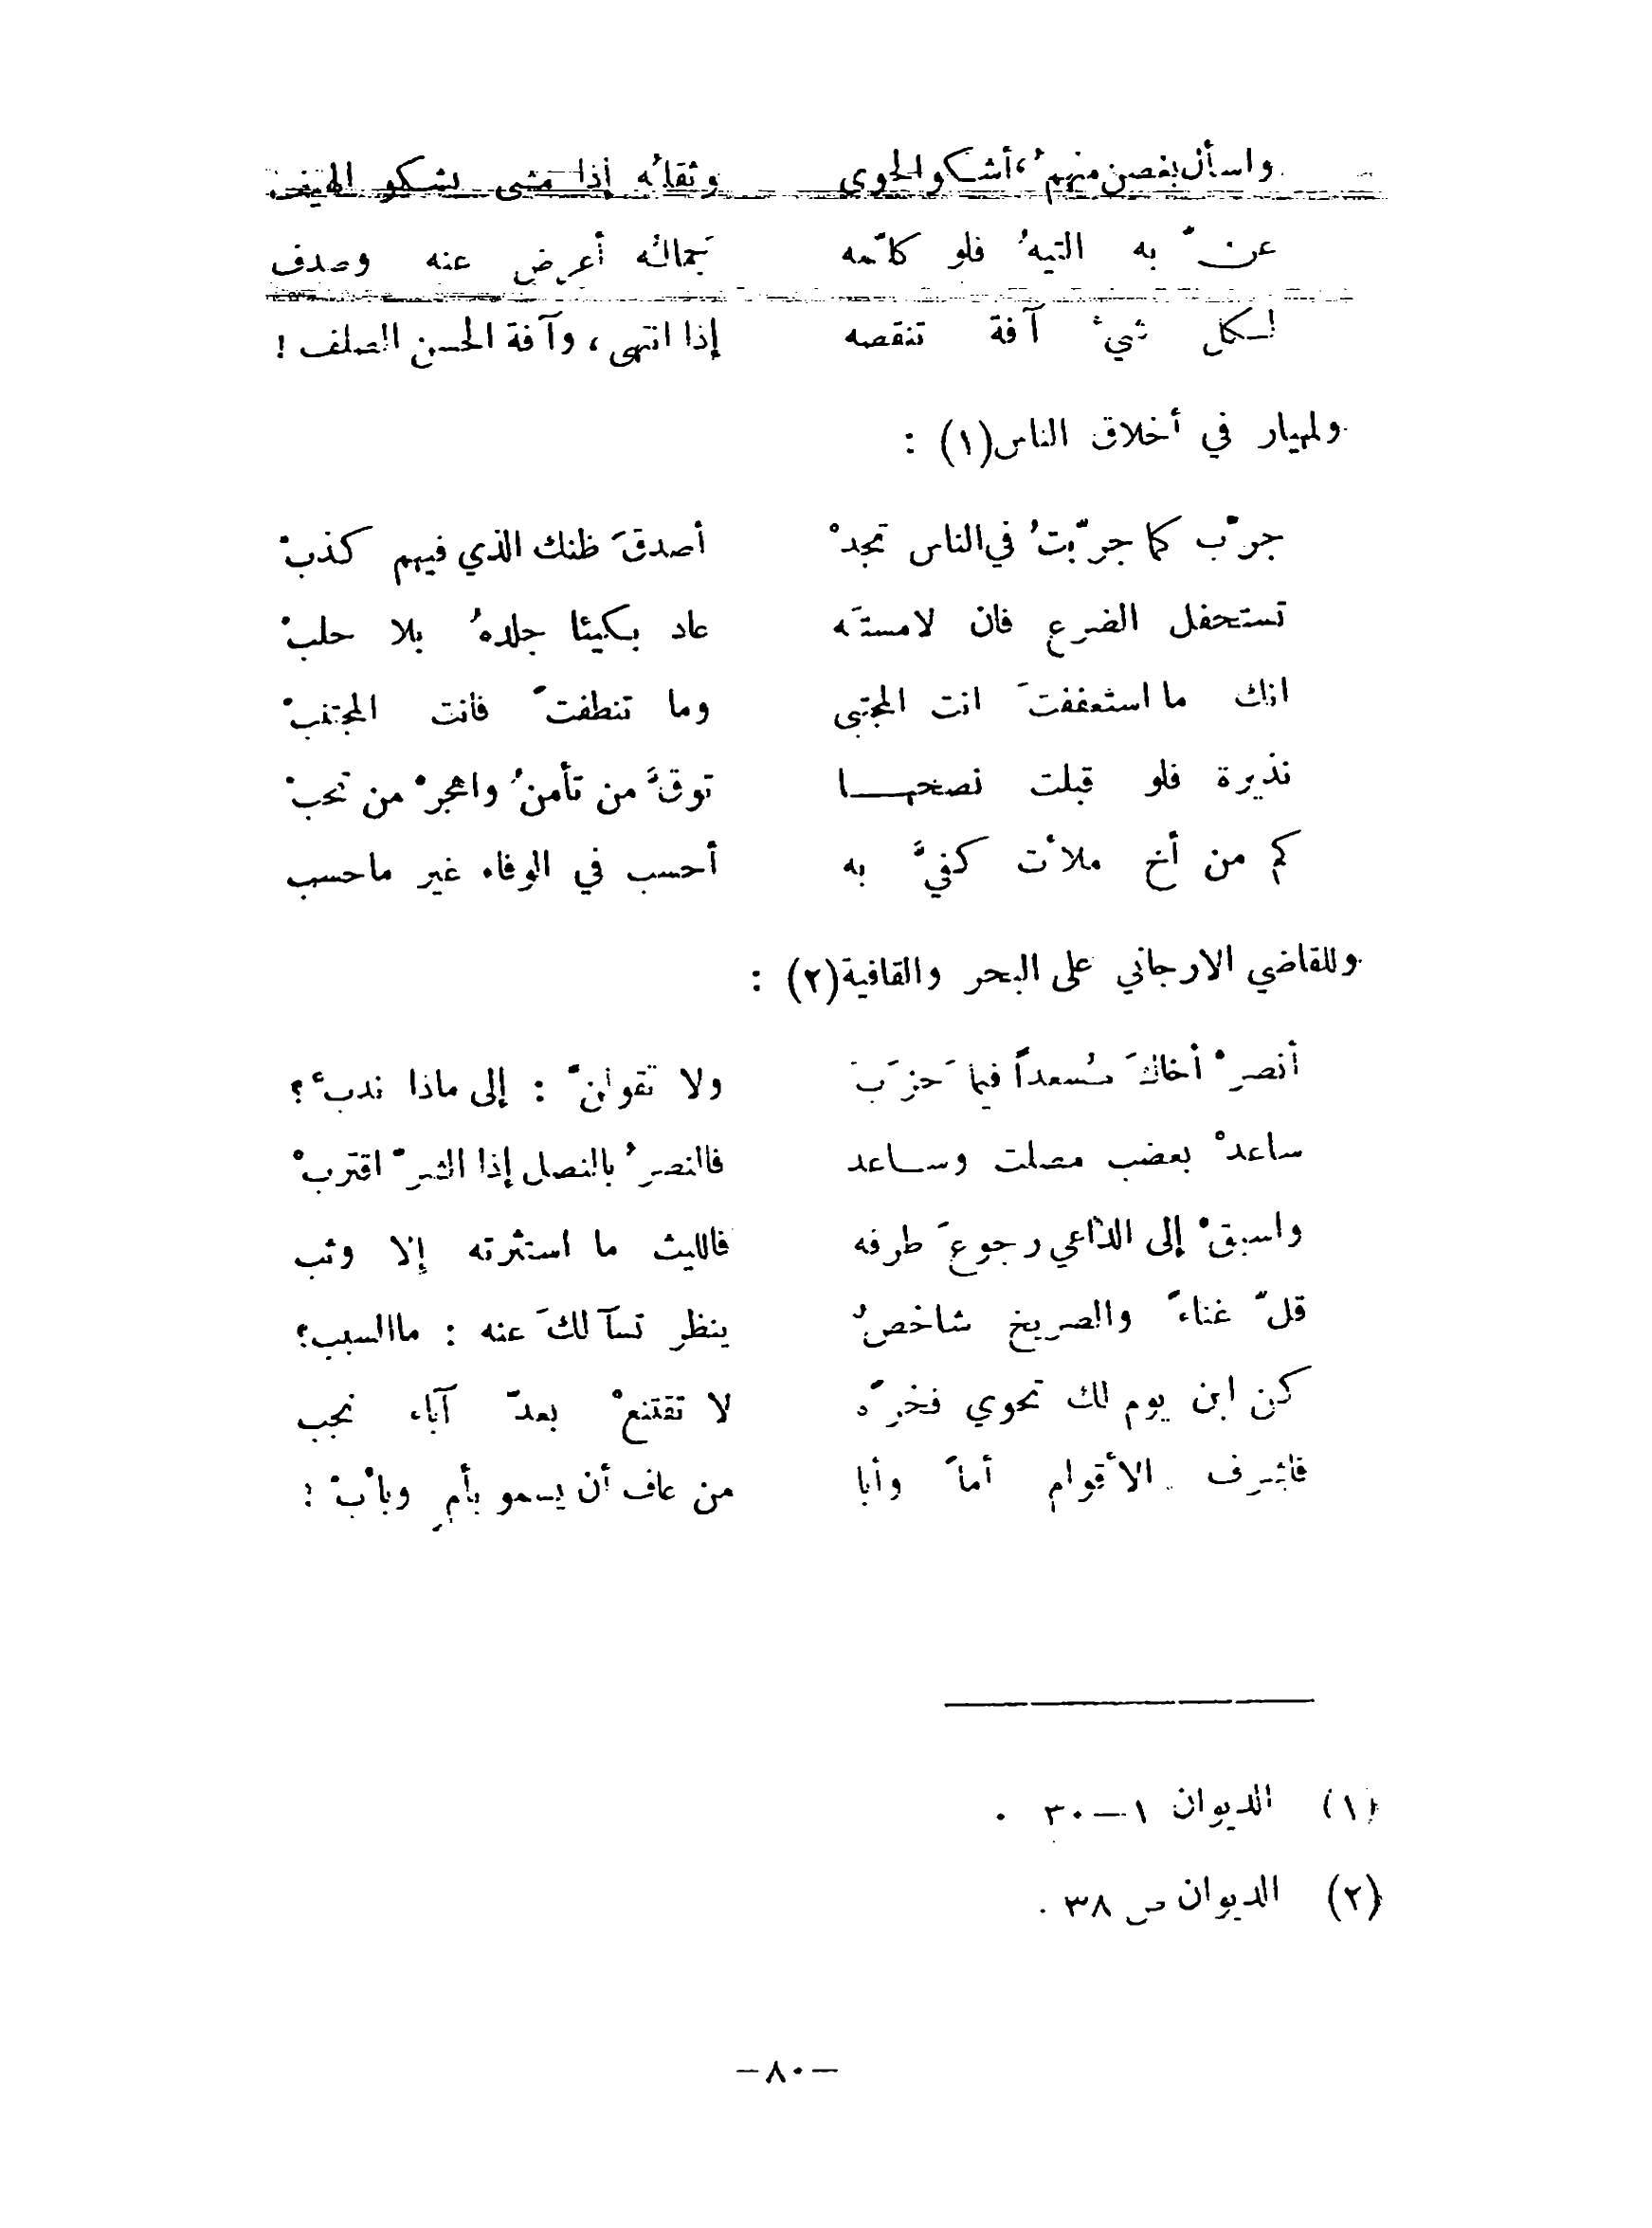 واسأل بغصن منهمُ، أشكو الجوى وثقله إذا مشى يشكو الهيف
عزّ به التيهُ فلو كلّمه جماله أعرض عنه وصدف
لكل شيء آفة تنقصه إذا انتهى، وآفة الحسن الصلف!
ولمهيار في أخلاق الناس(١) :
جرّب كما جرّبتُ في الناس تجدْ أصدقَ ظنك الذي فيهم كذبْ
تستحفل الضرع فان لامستَه عاد بكيئا جلدهُ بلا حلبْ
انك ما استعففتَ انت المجتبى وما تنطفتَ فانت المجتنبْ
نذيرة فلو قبلت نصحهـــا توقَّ من تأمنُ واهجرْ من تحبْ
كم من أخ ملأت كفيَّ به أحسب في الوفاء غير ماحسب
وللقاضي الارجاني على البحر والقافية(٢) :
أنصرْ أخاكَ مُسعداً فيما حزَبَ ولا تقولنّ : إلى ماذا ندبْ؟
ساعدْ بعضب مصلت وســاعد فالنصرُ بالنصل إذا الشرّ اقتربْ
واسبقْ إلى الدّاعي رجوعَ طرفه فالليث ما استثرته إلا وثب
قلّ غناءً والصريخ شاخصٌ ينظر تسآلكَ عنه : ماالسبب؟
كن ابن يوم لك تحوي فخرَه لا تقتنعْ بعدّ آباء نجب
فاشرف الأقوام أماً وأبا من عاف أن يسمو بأمٍ وبأبْ !
(١) الديوان ١—٣٠ .
(٢) الديوان ص ٣٨ .
—٨٠—